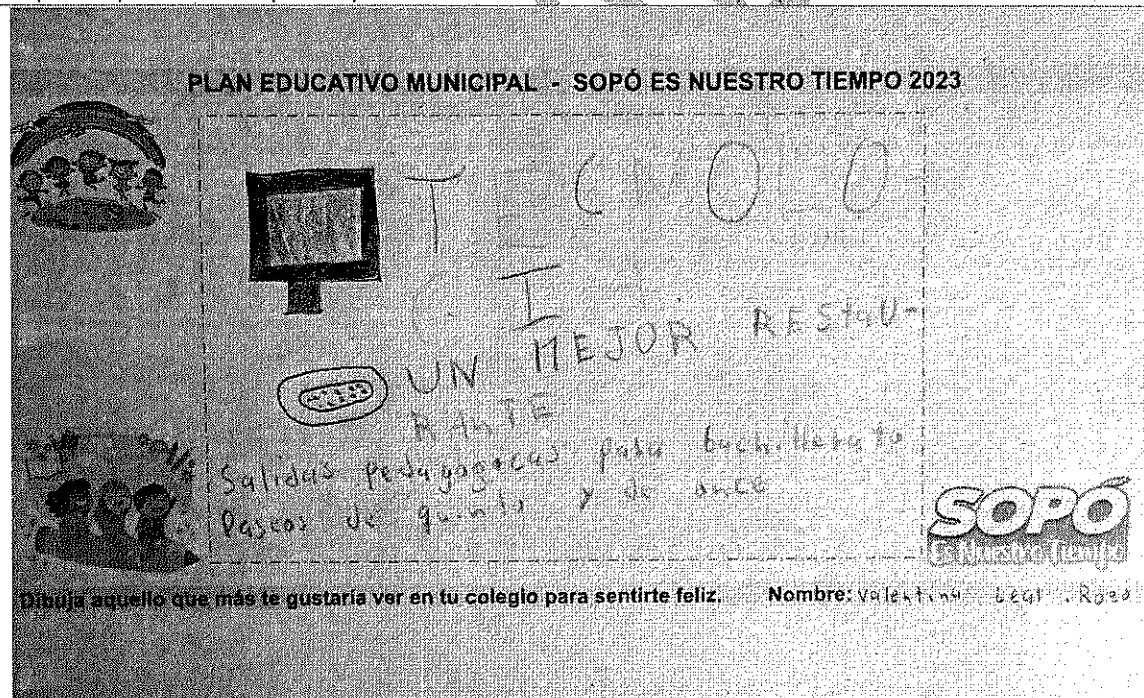 PLAN EDUCATIVO MUNICIPAL - SOPÓ ES NUESTRO TIEMPO 2023
UN MEJOR REStaU-
RANTE
Salidas pedagogocas para bachillerato
Paseos de quinto y de once
SOPÓ
Es Nuestro Tiempo
Dibuja aquello que más te gustaría ver en tu colegio para sentirte feliz. Nombre: Valentina Leal